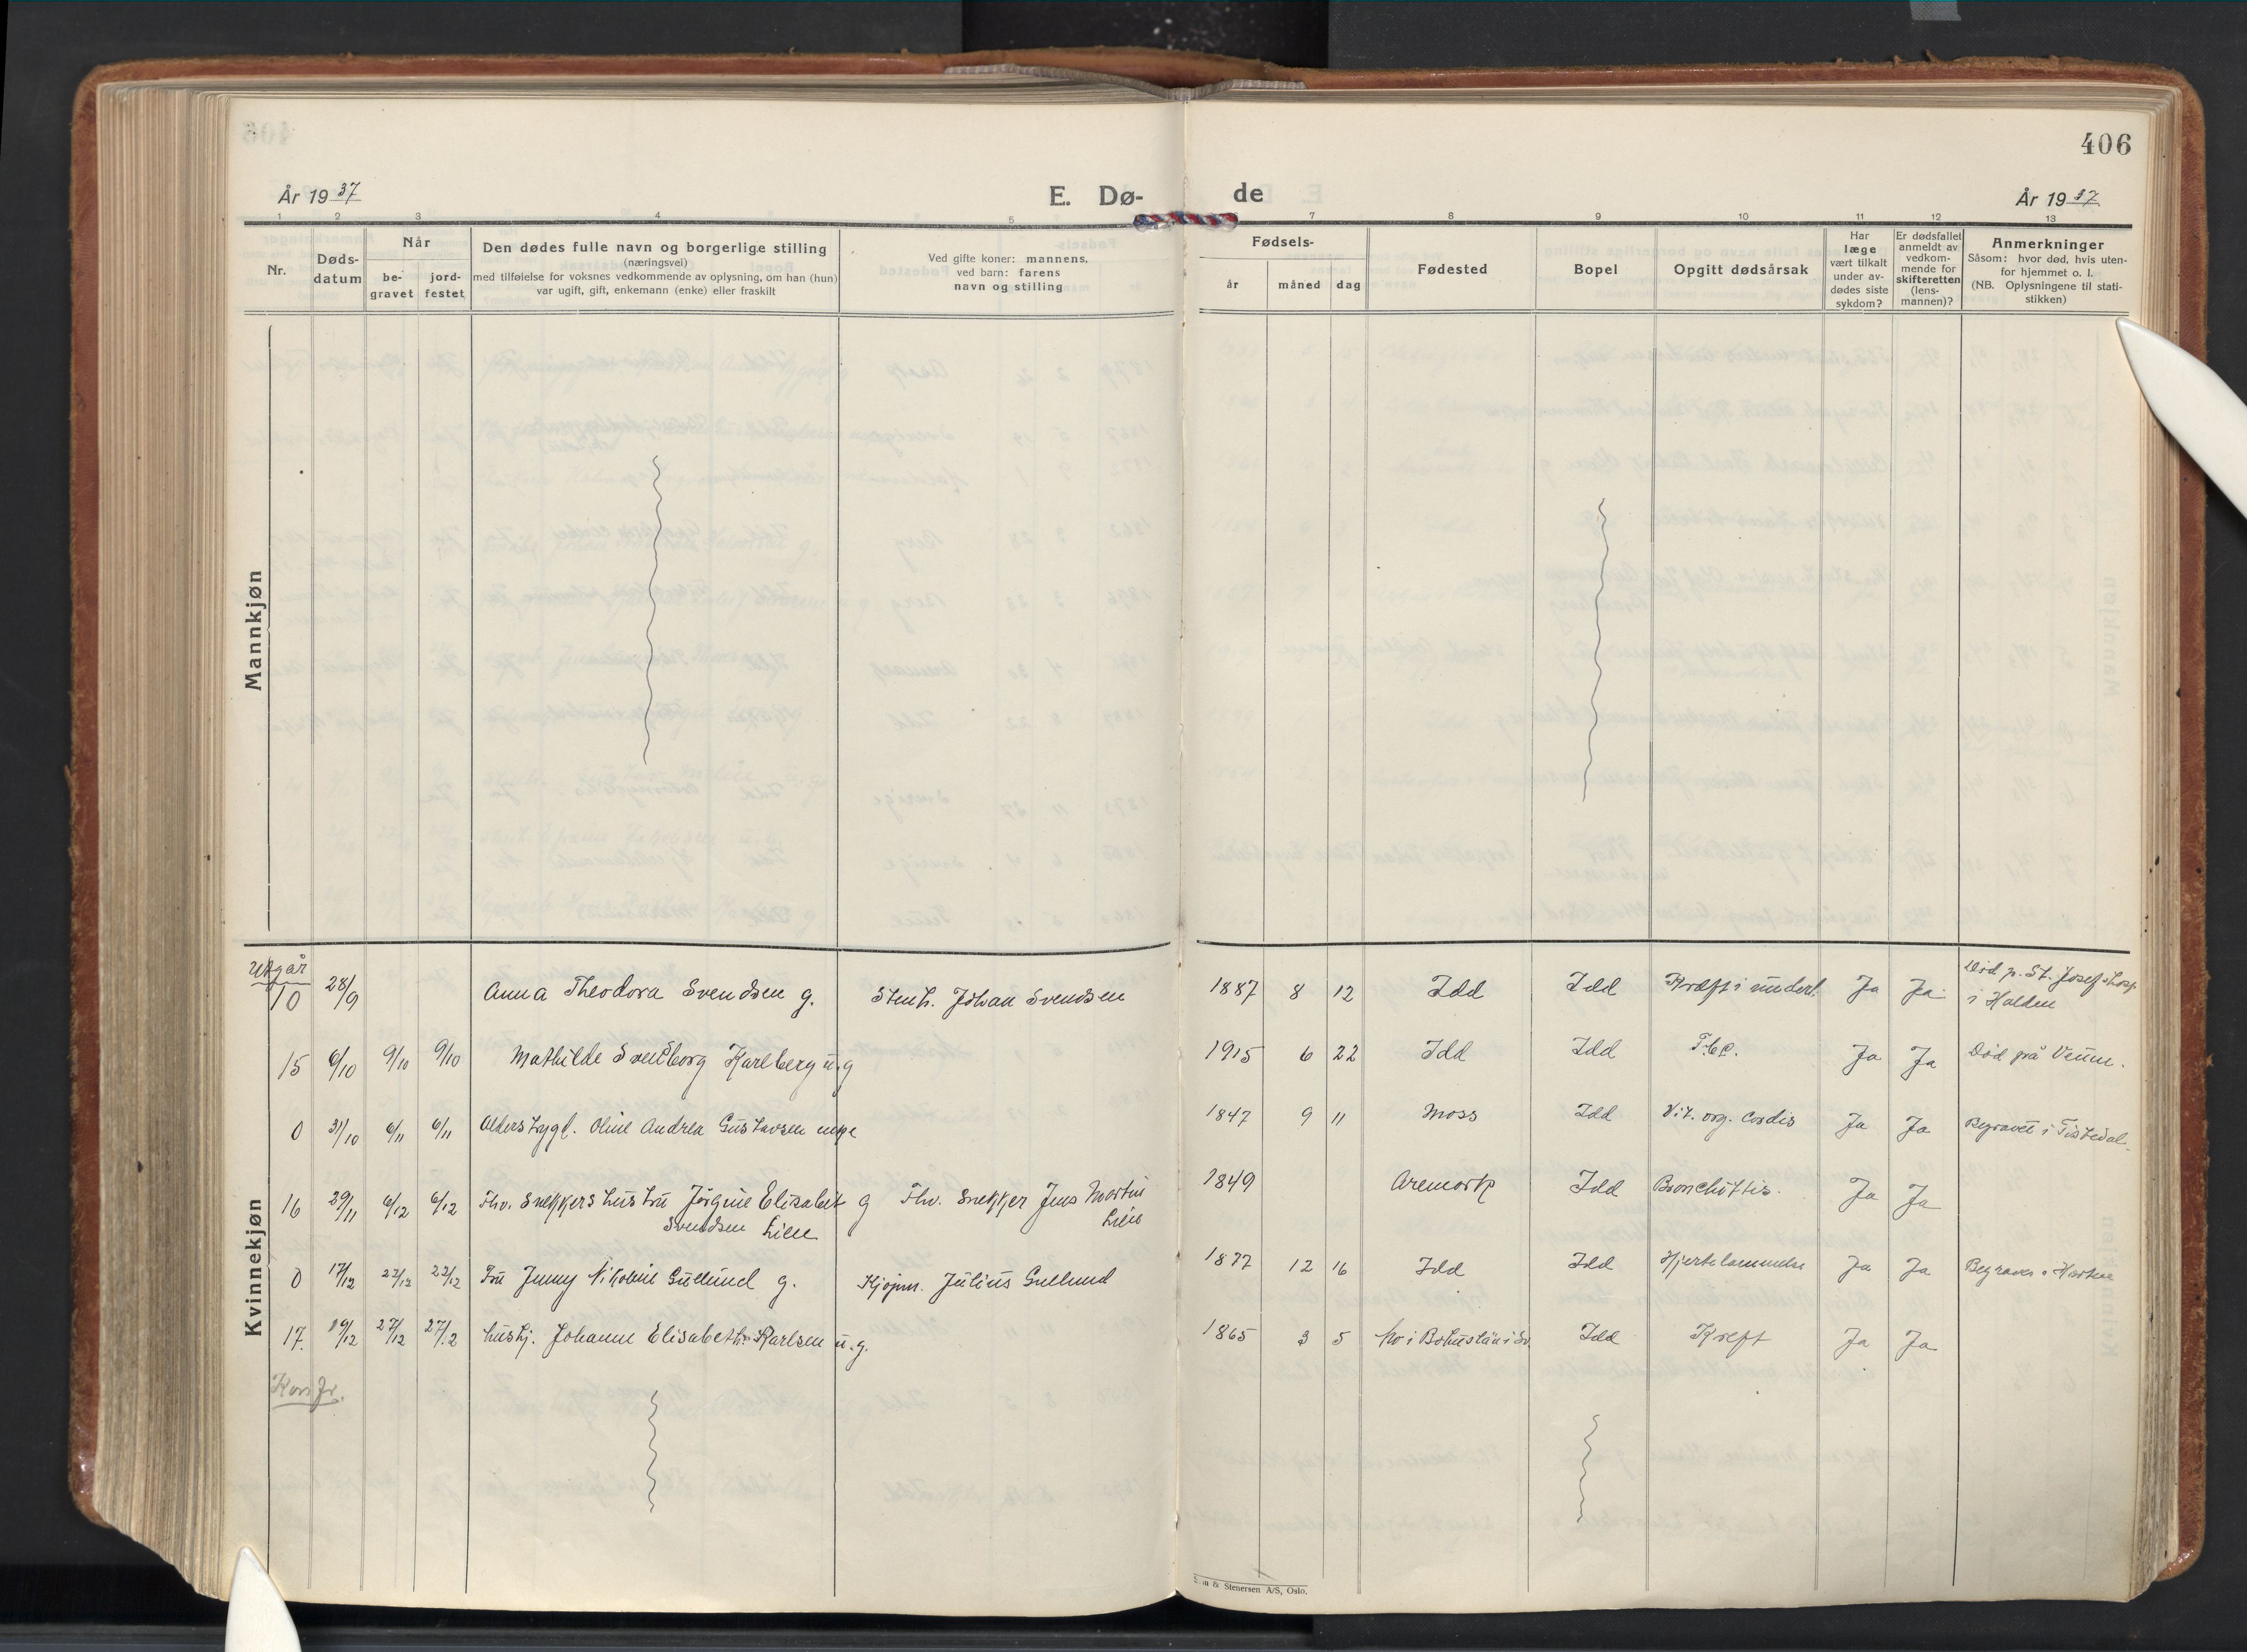 406
År 1937
E. Dø-
de
År 1937
1 2 3 4 5 7 8 9 10 11 12 13
Nr.
Døds-
datum
Når
be-
gravet
jord-
festet
Den dødes fulle navn og borgerlige stilling
(næringsvei)
med tilføielse for voksnes vedkommende av oplysning, om han (hun)
var ugift, gift, enkemann (enke) eller fraskilt
Ved gifte koner: mannens,
ved barn: farens
navn og stilling
Fødsels-
år måned dag
Fødested
Bopel
Opgitt dødsårsak
Har
læge
vært tilkalt
under av-
dødes siste
sykdom?
Er dødsfallet
anmeldt av
vedkom-
mende for
skifteretten
(lens-
mannen)?
Anmerkninger
Såsom: hvor død, hvis uten-
for hjemmet o. l.
(NB. Oplysningene til stati-
stikken)
Mannkjøn
Kvinnekjøn
Utgår
10 28/9 Anna Theodora Svendsen g. Stenh. Johan Svendsen 1887 8 12 Idd Idd Kræft i underl. Ja Ja Død p. St. Josefs hosp.
i Halden
15 6/10 9/10 9/10 Mathilde Svedborg Karlberg u.g 1915 6 22 Idd Idd Tbc. Ja Ja Død på Veum.
0 31/10 6/11 6/11 Alderstrygd. Oline Andrea Gustavsen enke 1847 9 11 Moss Idd Vit. org. cordis Ja Ja Begravet i Tistedal
16 29/11 6/12 6/12 Fhv. Snekkers hustru Jørgine Elisabet g Fhv. Snekker Jens Martin 1849 Aremark Idd Bronchittis. Ja Ja
Svendsen Lien Lien
0 17/12 22/12 22/12 Fru Jenny Nikoline Gullund g. Kjøpm. Julius Gullund 1877 12 16 Idd Idd Hjertelammelse Ja Ja
17. 19/12 27/12 27/12 hushj. Johanne Elisabeth Karlsen u.g. 1865 3 5 Mo i Bohuslän i Sv. Idd Kreft Ja Ja
Konfr.
& Stenersen A/S, Oslo.